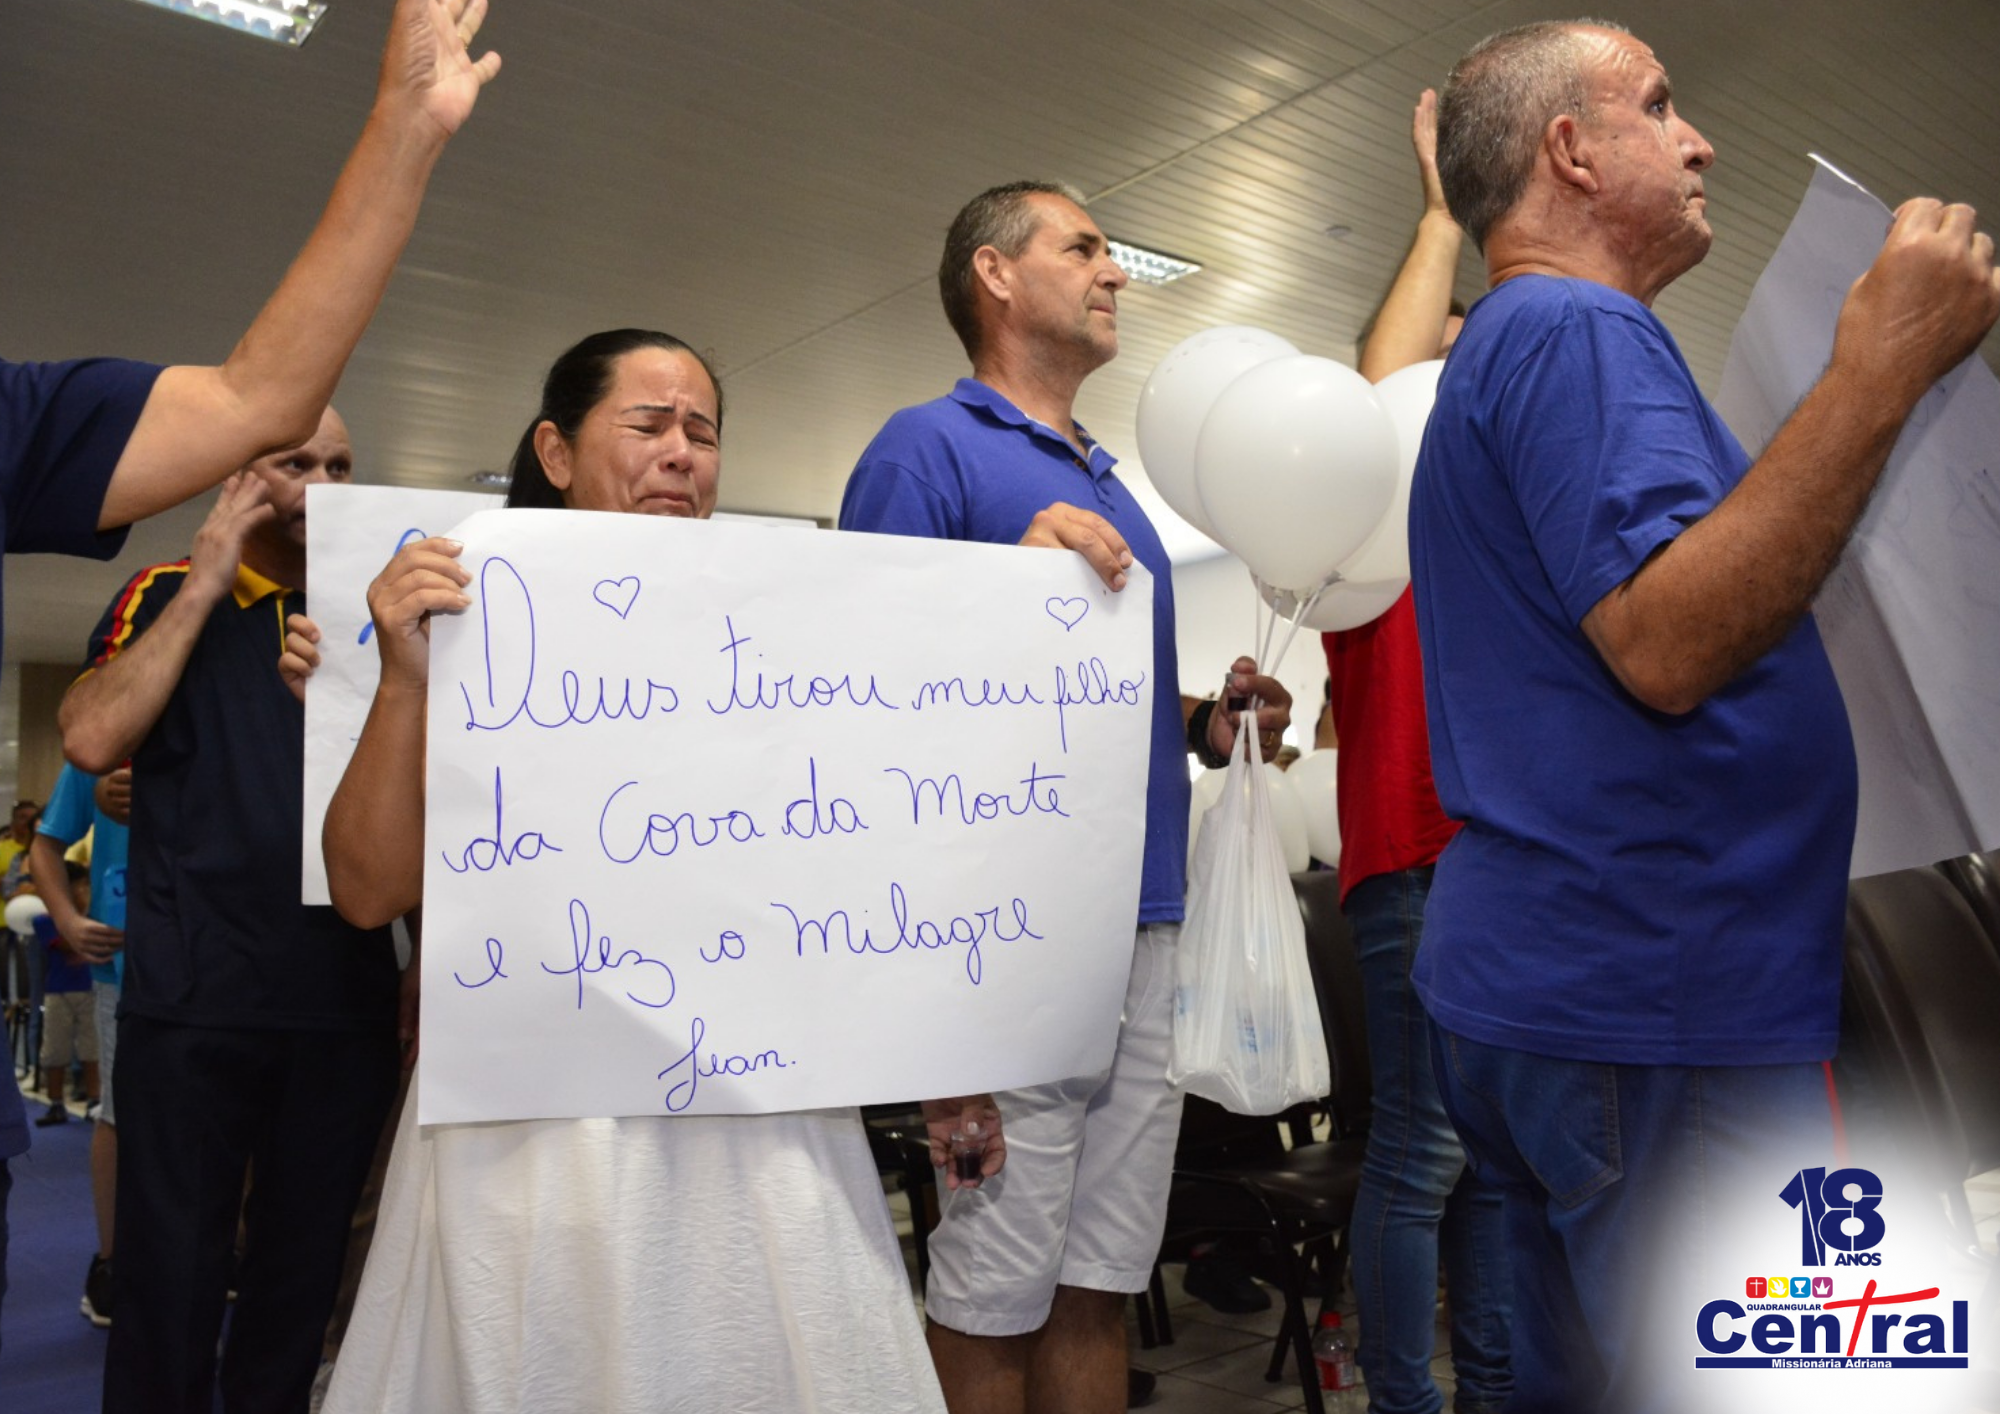 Deus tirou meu filho
da Cova da Morte
e fez o Milagre
Jean.
18
ANOS
QUADRANGULAR
Central
Missionária Adriana